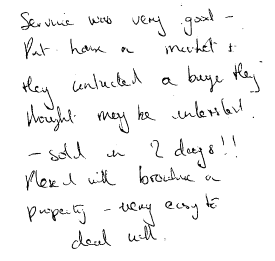 Service was very good -
Put home on market &
they contacted a buyer they
thought may be interested.
- sold in 2 days!!
Pleased with brochure on
property - very easy to
deal with.